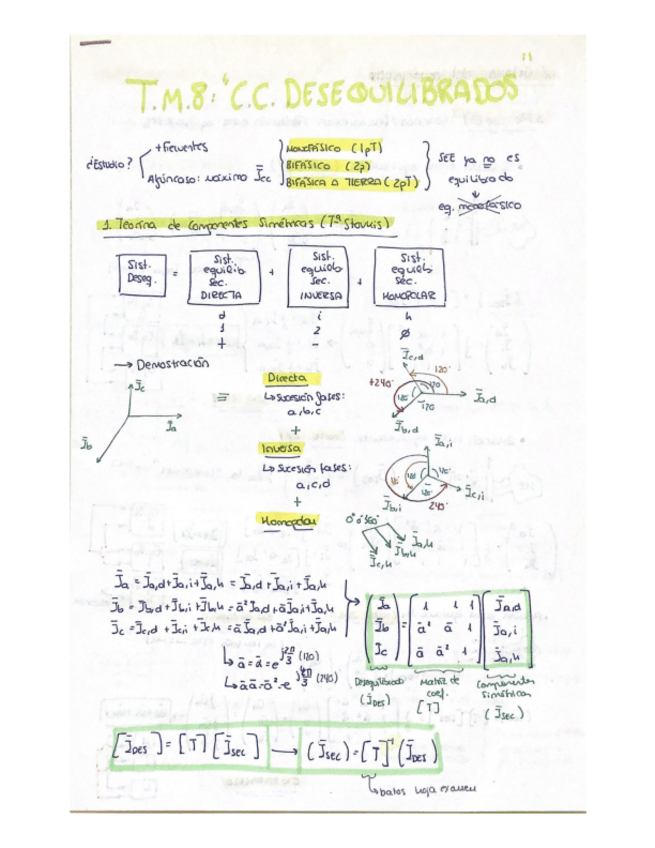 11
T.M.8: "C.C. DESEQUILIBRADOS
¿Estudio?
+ frecuentes
Algún caso: máximo J̄cc
MONOFÁSICO (1pT)
BIFÁSICO (2p)
BIFÁSICA A TIERRA (2pT)
SEE ya no es
equilibrado
↓
eq. monofásico
1. Teorina de Componentes Simétricas (Tª Stowis)
Sist. Deseq.
=
Sist. equilib sec. DIRECTA
+
Sist. equielb sec. INVERSA
+
Sist. equilib sec. HOMOPOLAR
d i h
1 2 Ø
+ -
→ Demostración
J̄c
J̄a
J̄b
≡
Directa
↳ Sucesión fases:
a, b, c
+
J̄c,d
120°
+240°
120
120
J̄a,d
J̄b,d
Inversa
↳ Sucesión fases:
a, c, d
+
J̄a,i
120°
J̄c,i
J̄b,i
240°
Homopolar
0° 0° 360°
J̄a,h
J̄b,h
J̄c,h
J̄a = J̄a,d + J̄a,i + J̄a,h = J̄a,d + J̄a,i + J̄a,h
J̄b = J̄b,d + J̄b,i + J̄b,h = ā² J̄a,d + ā J̄a,i + J̄a,h
J̄c = J̄c,d + J̄c,i + J̄c,h = ā J̄a,d + ā² J̄a,i + J̄a,h
↳ ā = ā = e^j2π/3 (120)
↳ ā ā = ā² = e^j4π/3 (240)
J̄a 1 1 1 J̄a,d
J̄b = ā² ā 1 J̄a,i
J̄c ā ā² 1 J̄a,h
Desequilibrado
(J̄DES)
Matriz de
coef.
[T]
Componentes
Simétricas
(J̄sec)
[J̄DES] = [T] [J̄sec] → (J̄sec) = [T]⁻¹ (J̄DES)
↳ datos hoja examen